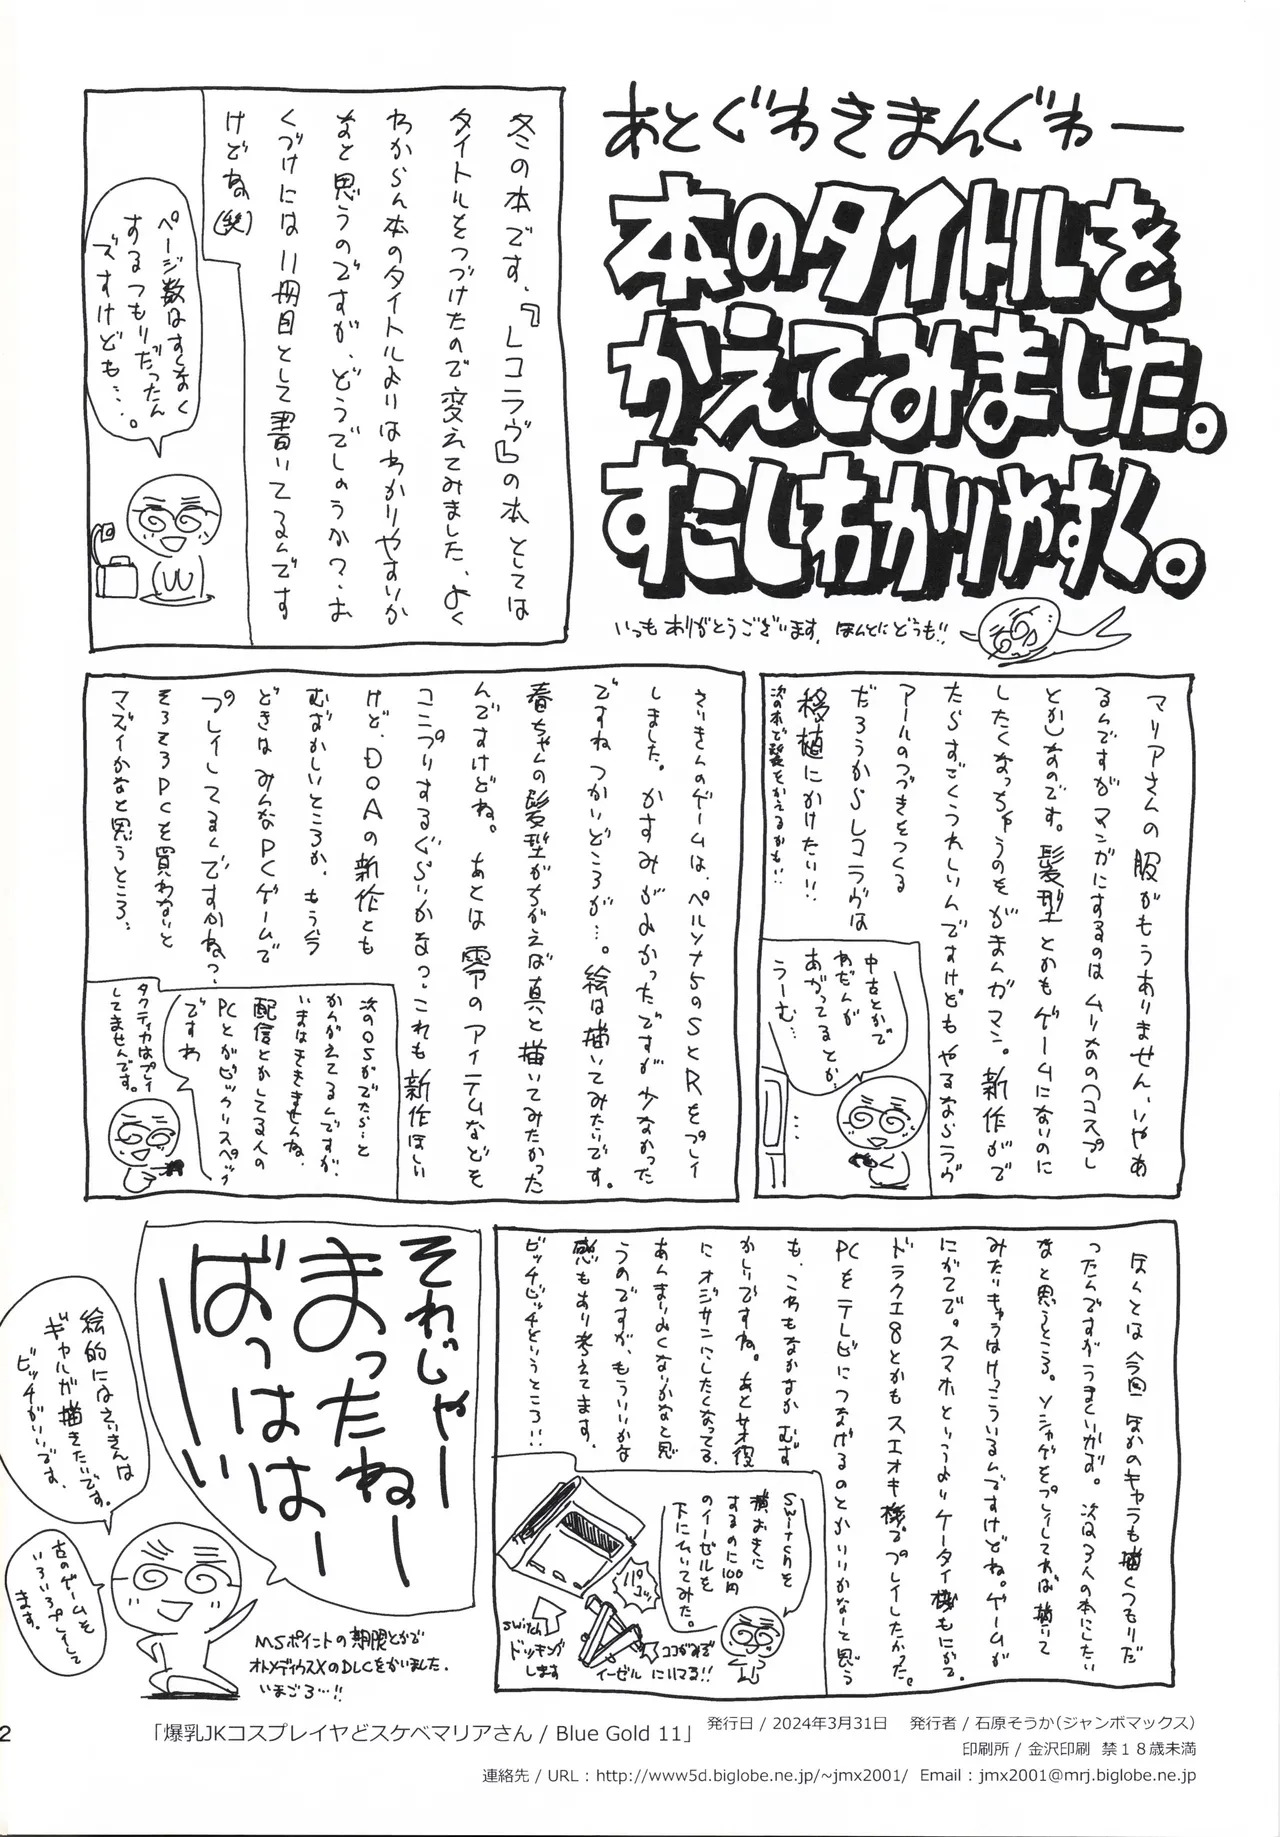 あとぐわきまんぐわー
本のタイトルを
かえてみました。
すこしわかりやすく。
いつもありがとうございます。ほんとにどうも!!
冬の本です。『レコラヴ』の本としては
タイトルをつづけたので変えてみました。よく
わからん本のタイトルよりはわかりやすいか
なと思うのですが、どうでしょうか?お
くづけには11冊目として書いてるんです
けどね(笑)
ページ数はすくなく
するつもりだったん
ですけども…。
マリアさんの服がもうありません。いやあ
るんですがマンガにするのはムリめの(コスプレ
とか)なのです。髪型とかもゲームにないのに
したくなっちゃうのをがまんガマン。新作がで
たらすごくうれしいんですけどもやるならラヴ
アールのつづきをつくる
だろうからレコラヴは
移植にかけたい!!
次の本で髪をかえるかも!!
中古とかで
ねだんが
あがってるとか。
うーむ…
さいきんのゲームは、ペルソナ5のSとRをプレイ
しました。かすみがみかったですが少なかった
ですね つかいどころが…。絵は描いてみたいです。
春ちゃんの髪型がちがえば真と描いてみたかった
んですけどね。あとは零のアイテムなどを
コンプリするぐらいかな?これも新作ほしい
けど、DOAの新作とも
むずかしいところか、もう今
どきはみんなPCゲームで
プレイしてるんですかね?
そろそろPCを買わないと
マズイかなと思うところ、
次のOSがでたら…と
かんがえてるんですが、
いまはききませんね、
配信とかしてる人の
PCとかビックリスペック
ですわ
タクティカはプレイ
してませんです。
ほんとは今回ほかのキャラも描くつもりだ
ったんですがうまくいかず。次は3人の本にしたい
なと思うところ。ソシャゲをプレイしてれば描いて
みたいキャラはけっこういるんですけどね。ゲームが
にがてで。スマホというよりケータイ機もにがて。
ドラクエ8とかもスエオキ様でプレイしたかった。
PCをテレビにつなげるのとかいいかなーと思う
も、これもなかなかむず
かしいですね。あと某役
にオジサンにしたくなってる。
あんまりよくないかなと思
うのですが、もういいかな
感もあり考えてます。
ビッチビッチというところ!!
Switchを
横おきに
するのに100円
のイーゼルを
下にひいてみた。
パコッ
Switch
ドッキング
します
イーゼル
ココがみぞ
にいてる!!
それじゃー
まったねー
ばっはは
ーーい
絵的にはえいきんは
ギャルが描きたいです。
ビッチがいいです。
古のゲームを
いろいろプレイして
ます。
MSポイントの期限とかで
オトメディウスXのDLCをかいました。
いまごろ…!!
2
「爆乳JKコスプレイヤどスケベマリアさん / Blue Gold 11」
発行日 / 2024年3月31日　発行者 / 石原そうか(ジャンボマックス)
印刷所 / 金沢印刷　禁18歳未満
連絡先 / URL : http://www5d.biglobe.ne.jp/~jmx2001/　Email : jmx2001@mrj.biglobe.ne.jp